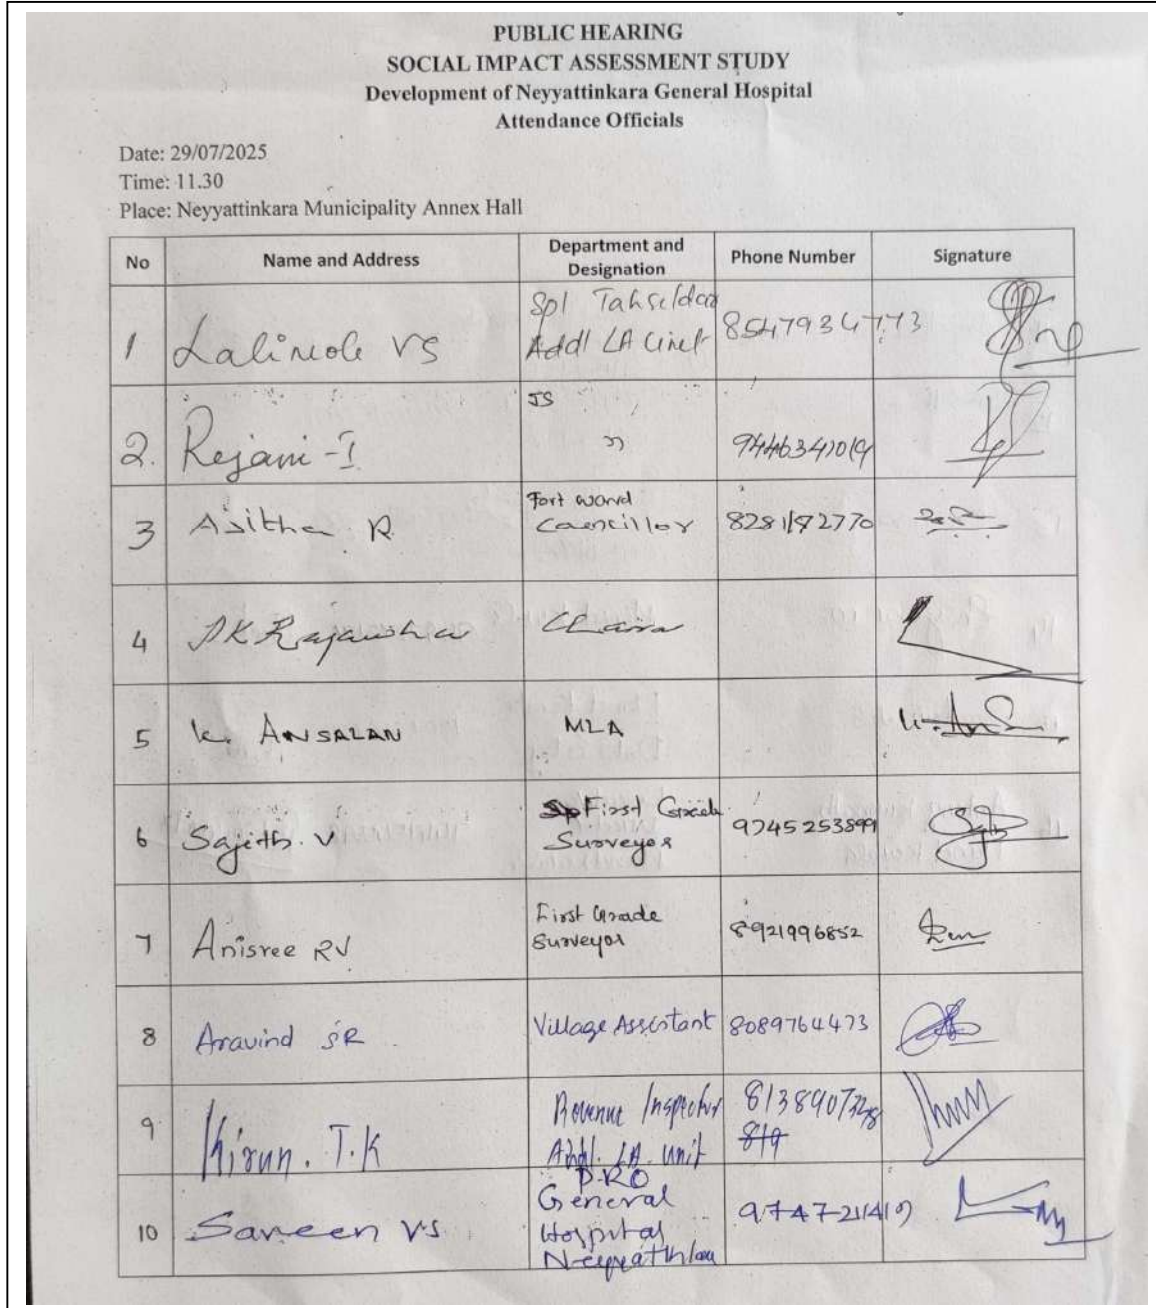 PUBLIC HEARING
SOCIAL IMPACT ASSESSMENT STUDY
Development of Neyyattinkara General Hospital
Attendance Officials
Date: 29/07/2025
Time: 11.30
Place: Neyyattinkara Municipality Annex Hall
No Name and Address Department and Designation Phone Number Signature
1 Lalimole VS Spl Tahsildar
Addl LA Unit 8547934773
2. Rejani-I JS
"
3 Asitha R Fort ward
Councillor 8281182770
4 PK Rajamoha
5 K. ANSALAN MLA
6 Sajith. V First Grade
Surveyor 9745253899
7 Anisree RV First Grade
Surveyor 8921996852
8 Aravind SR Village Assistant 8089764473
9 Kiran. T.K Revenue Inspector
Addl. LA. unit
10 Saveen V.S. P.RO
General
Hospital